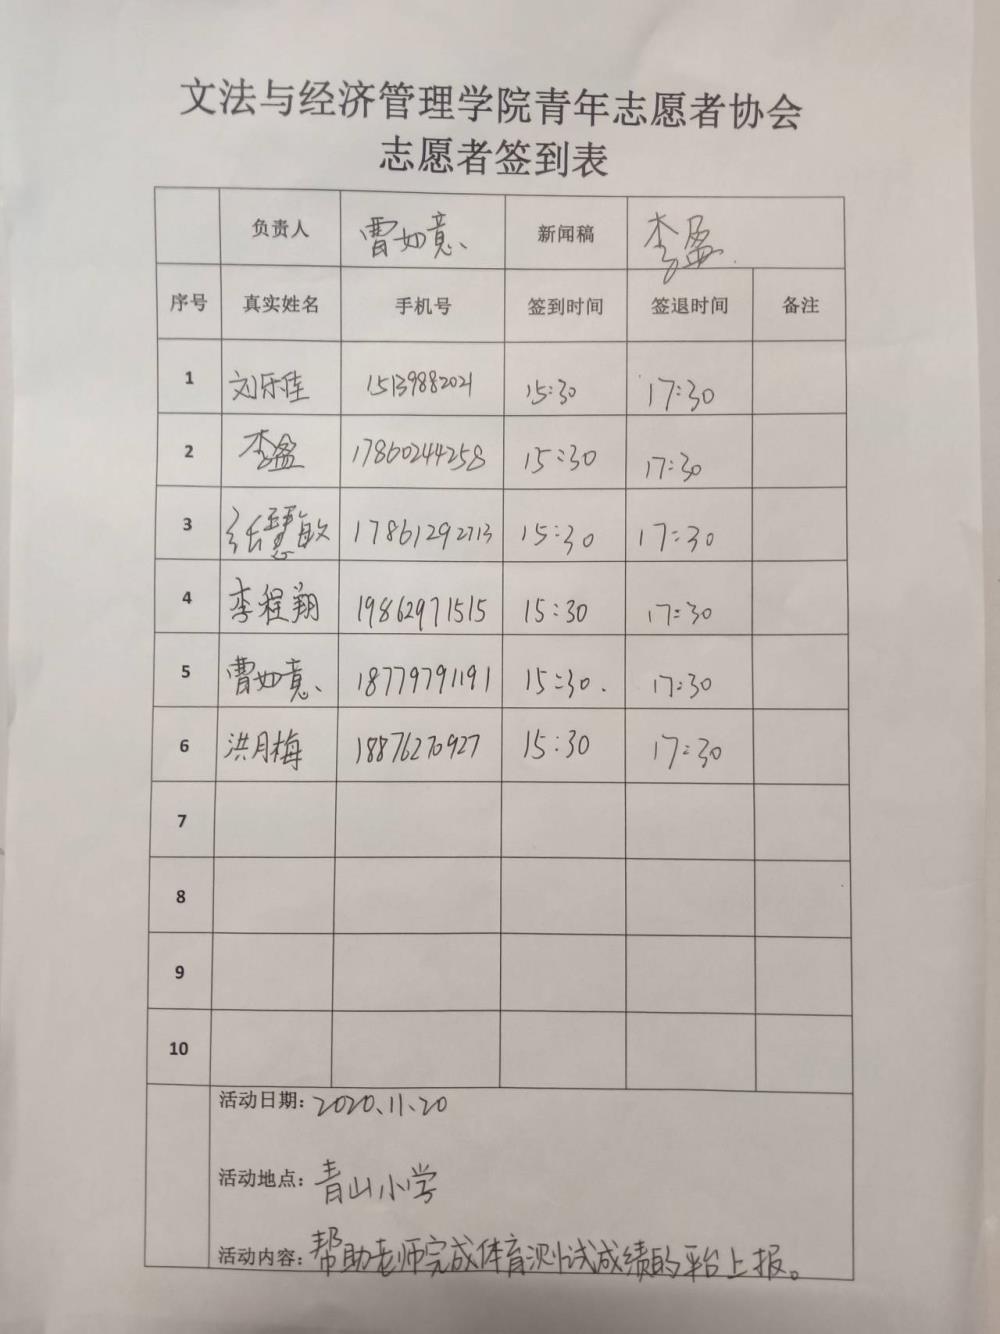 文法与经济管理学院青年志愿者协会
志愿者签到表
负责人 曹如意 新闻稿 李盈
序号 真实姓名 手机号 签到时间 签退时间 备注
1 刘乐佳 15139882021 15:30 17:30
2 李盈 17860244258 15:30 17:30
3 张慧敏 17861292713 15:30 17:30
4 李程翔 19862971515 15:30 17:30
5 曹如意 18779791191 15:30. 17:30
6 洪月梅 18876270927 15:30 17:30
7
8
9
10
活动日期: 2020.11.20
活动地点: 青山小学
活动内容: 帮助老师完成体育测试成绩的平台上报。